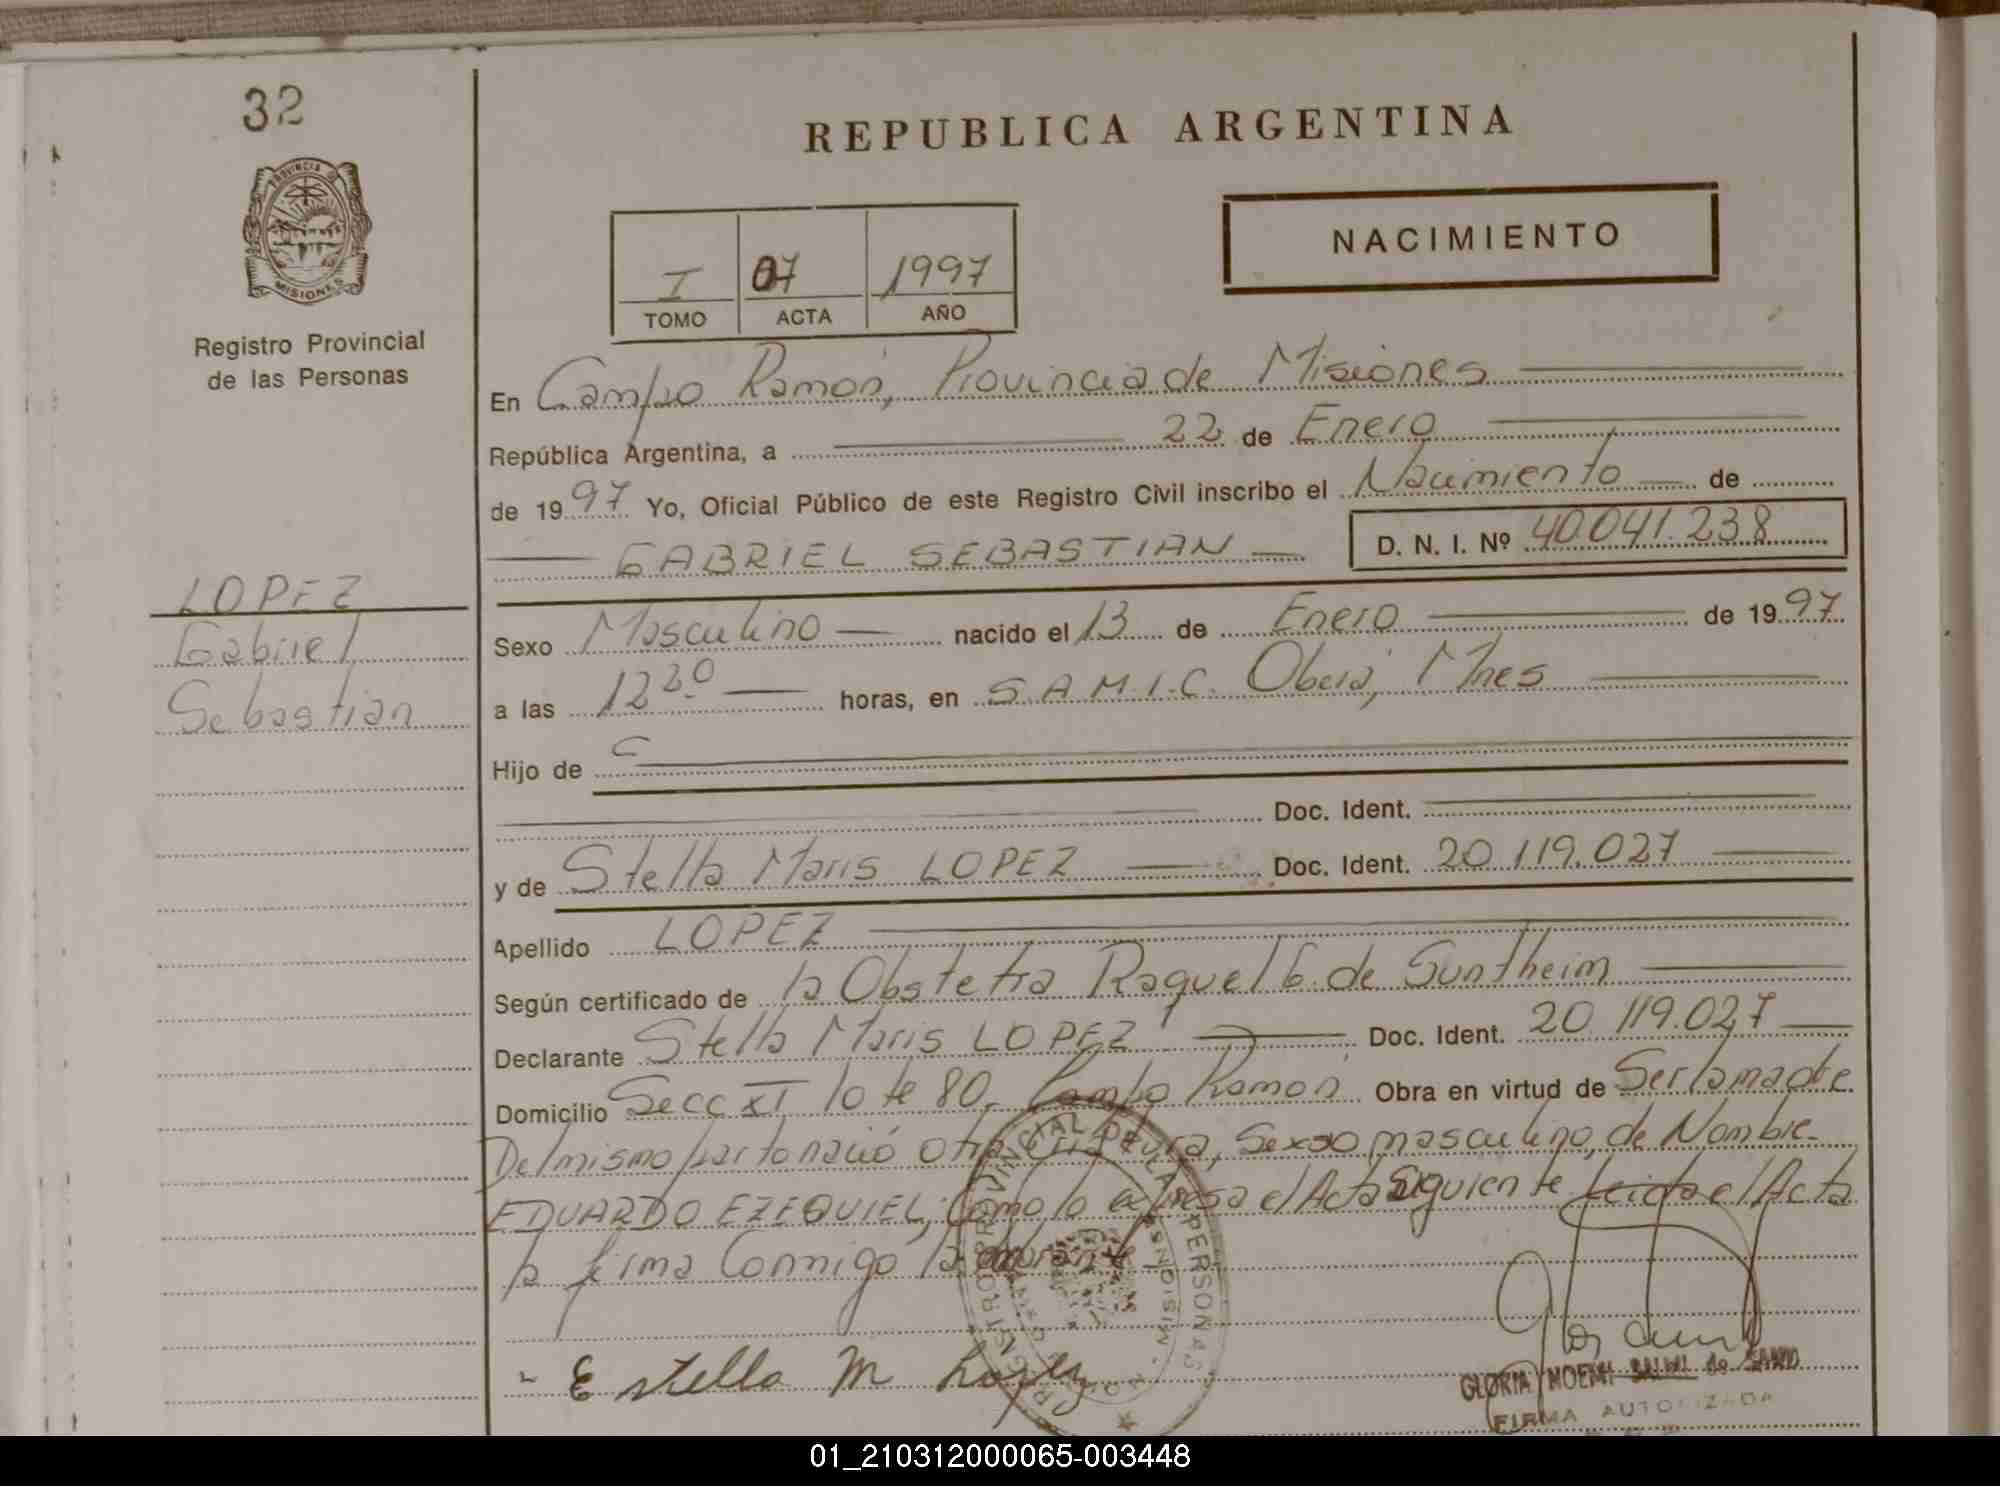 32
PROVINCIA D
MISIONES
Registro Provincial
de las Personas
LOPEZ
Gabriel
Sebastian
REPUBLICA ARGENTINA
NACIMIENTO
I 07 1997
TOMO ACTA AÑO
En Campo Ramón, Provincia de Misiones
República Argentina, a 22 de Enero
de 1997 Yo, Oficial Público de este Registro Civil inscribo el Nacimiento de
GABRIEL SEBASTIAN D. N. I. Nº 40.041.238
Sexo Masculino nacido el 13 de Enero de 1997
a las horas, en S.A.M.I.C. Oberá, Mnes
Hijo de
Doc. Ident.
y de Stella Maris LOPEZ Doc. Ident. 20.119.027
Apellido LOPEZ
Según certificado de la Obstetra Raquel G. de Suntheim
Declarante Stella Maris LOPEZ Doc. Ident. 20.119.027
Domicilio Secc XI lote 80, Campo Ramon Obra en virtud de Ser la madre
Del mismo parto nació otra criatura, Sexso masculino, de Nombre
EDUARDO EZEQUIEL, Como lo expresa el Acta siguiente Leida el Acta
la firma Conmigo la
Estella M Lopez
REGISTRO PROVINCIAL DE LAS PERSONAS
MISIONES
GLORIA NOEMI de
FIRMA AUTORIZADA
01_210312000065-003448